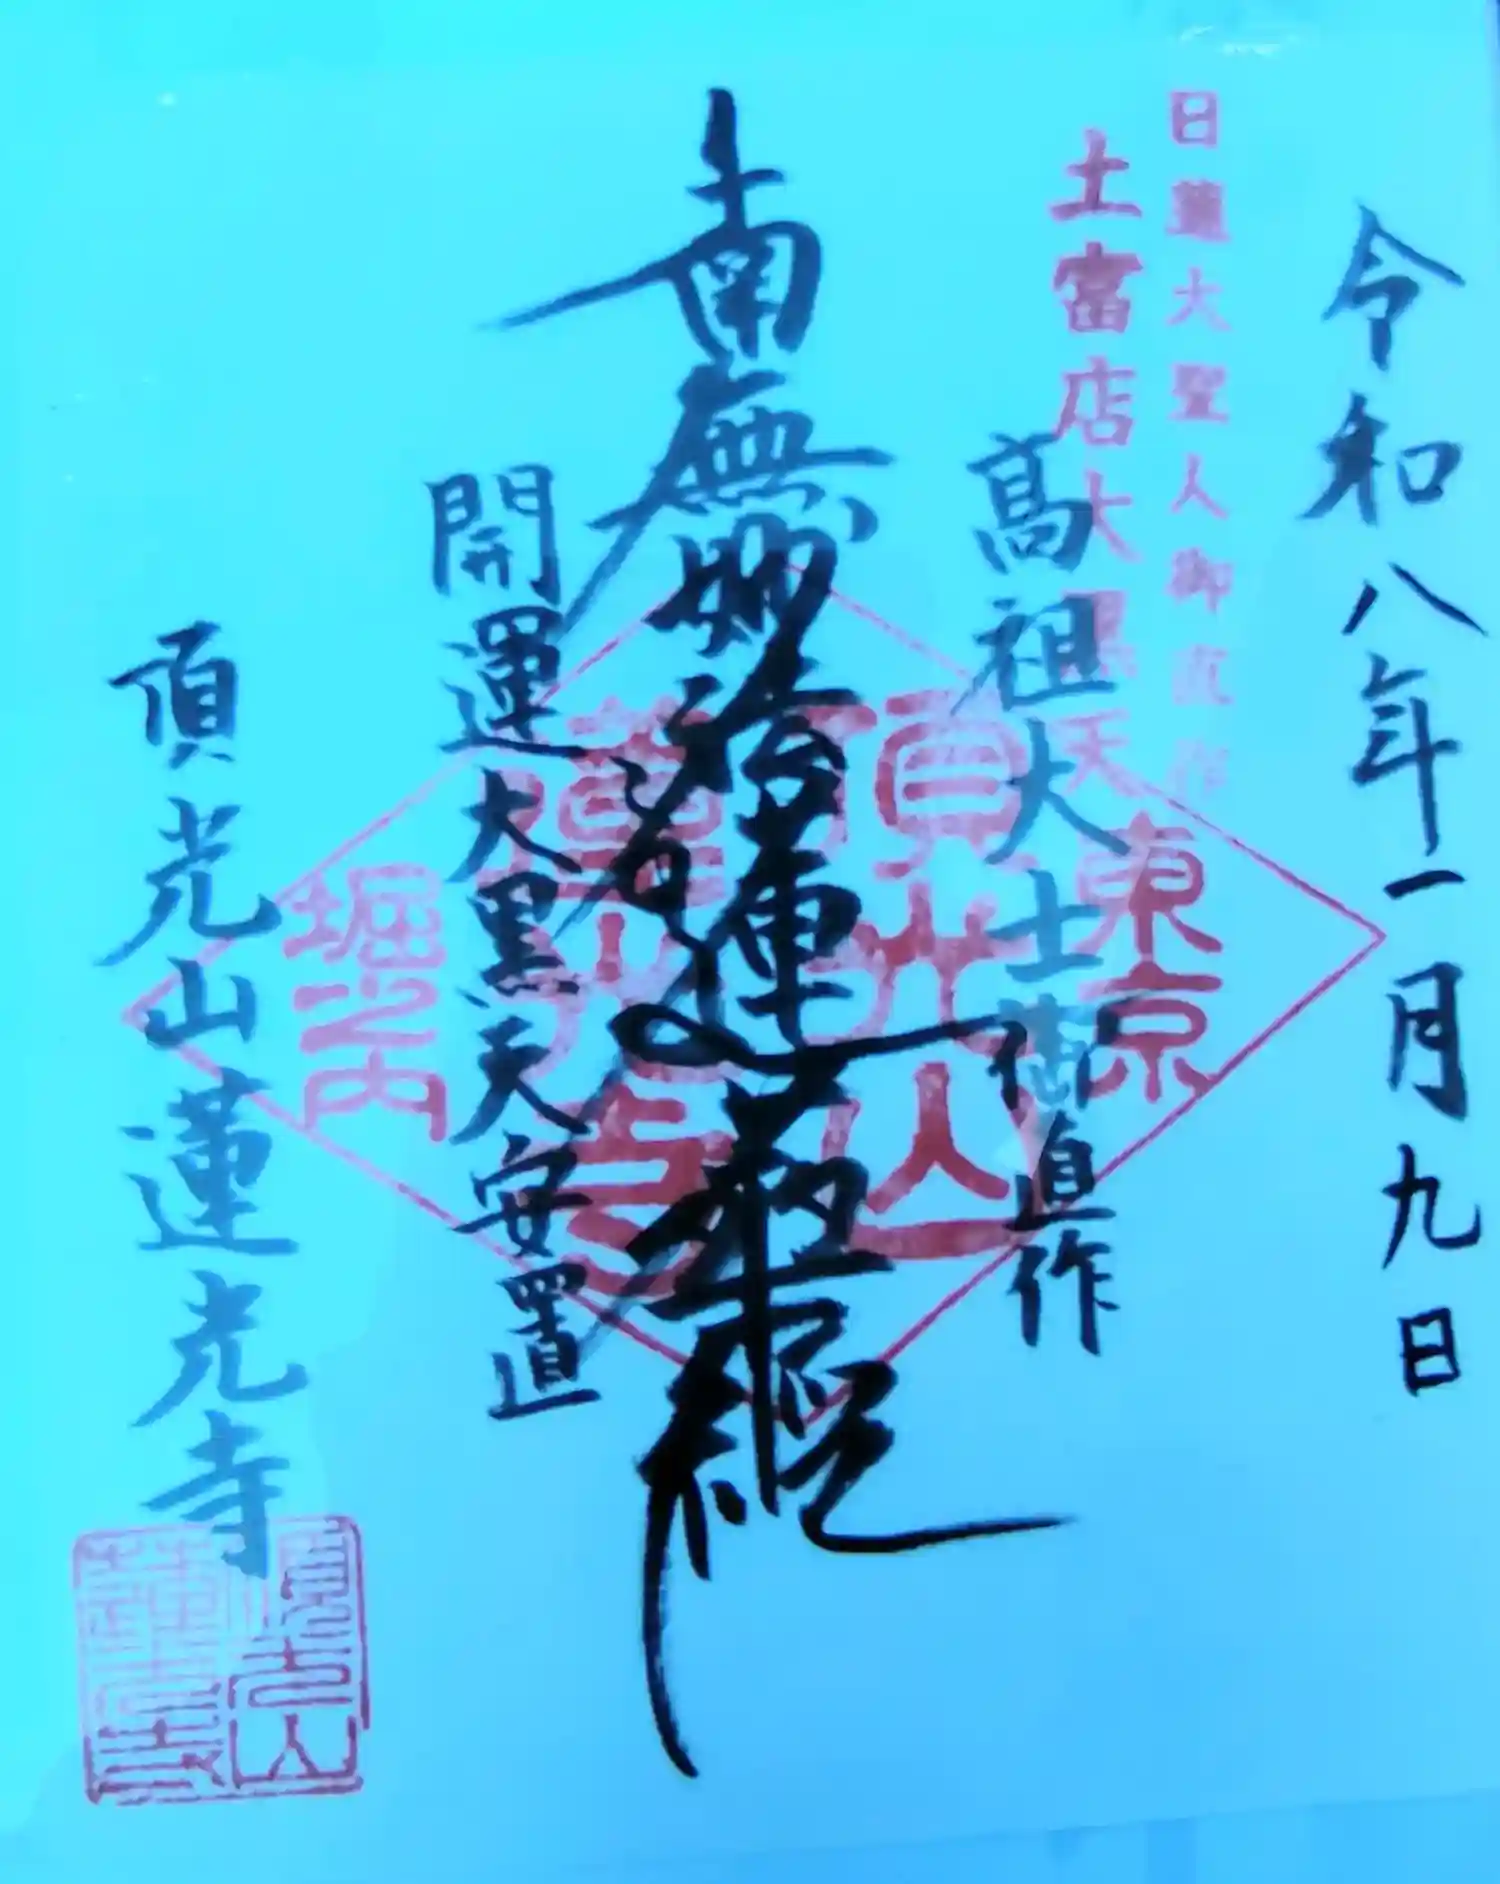 令和八年一月九日
日蓮大聖人御直作
土富店大黒天
高祖大士御直作
東京
頂光山
南無妙法蓮華経
蓮光寺
開運大黒天安置
堀之内
頂光山蓮光寺
頂光山
蓮光寺